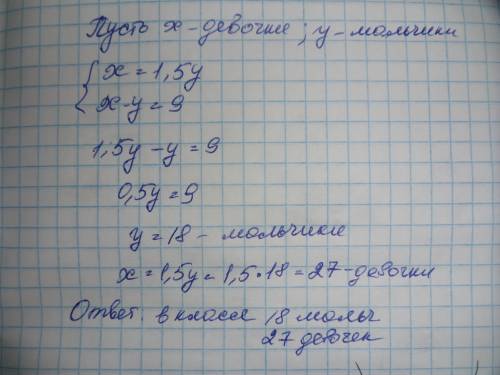 Пусть x - девочки ; y - мальчики
{ x = 1,5y
x - y = 9
1,5y - y = 9
0,5y = 9
y = 18 - мальчики
x = 1,5y = 1,5 · 18 = 27 - девочки
Ответ: в классе 18 мальч
27 девочек